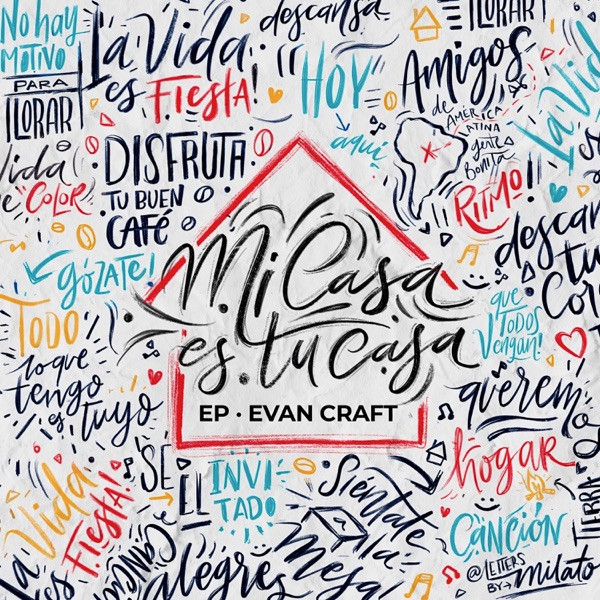 No hay
MOTIVO
PARA
LLORAR
La Vida
es FIESTA!
descansa
"HOY
aquí
LLORAR
Amigos
de
AMÉRICA
LATINA
gente
Bonita
RITMO!
La Vida
es
Vida
COLOR
DISFRUTA
TU BUEN
CAFÉ
GÓZATE!
descansa
tu
Cor
TODO
lo que
tengo
es tuyo
Mi Casa
es tu casa
EP · EVAN CRAFT
que
TODOS
Vengan!
querem
hogar
TIERRA
CANCIÓN
@LETTERS
BY→milato
La Vida
es
Fiesta!
SÉ
EL
INVI
TADO
Siéntate
a la
Mesa
alegres